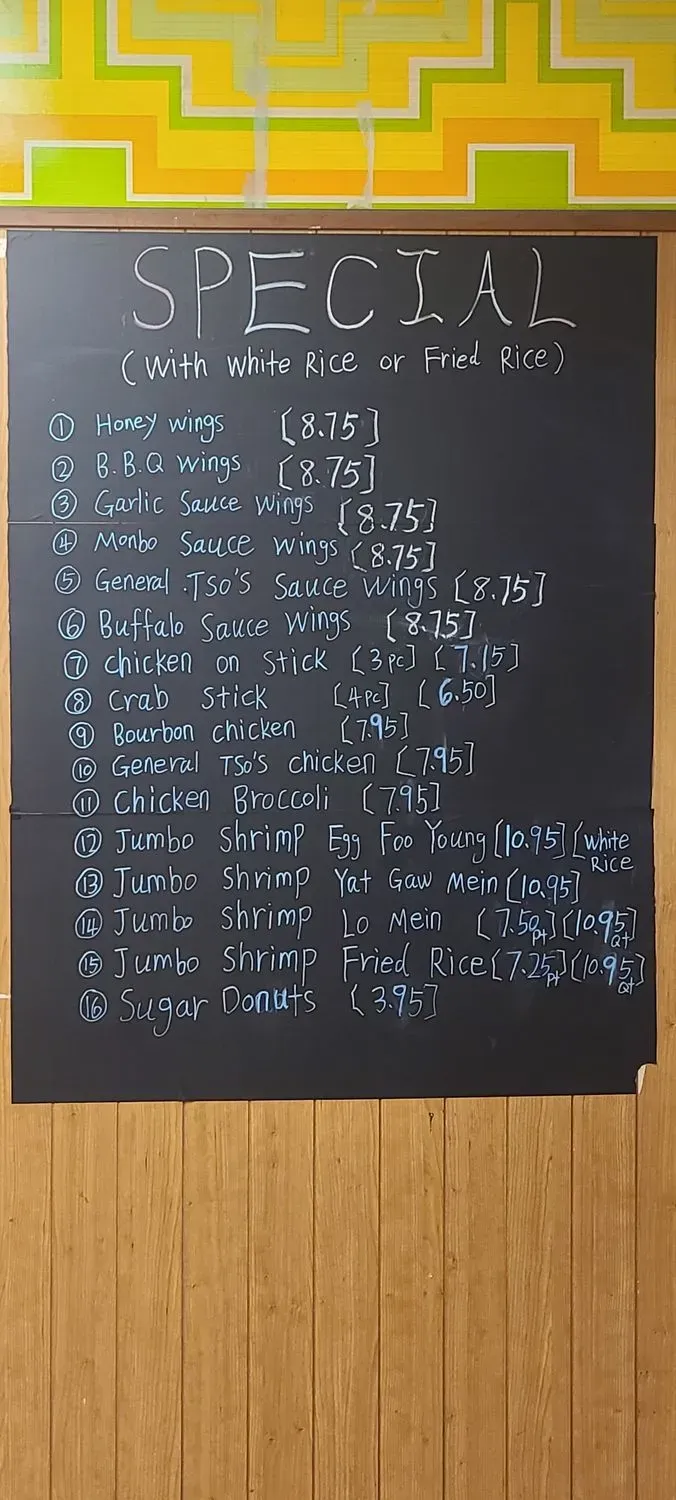 SPECIAL
(With White Rice or Fried Rice)
① Honey wings [8.75]
② B.B.Q wings [8.75]
③ Garlic Sauce wings [8.75]
④ Monbo Sauce wings [8.75]
⑤ General .TSO'S Sauce wings [8.75]
⑥ Buffalo Sauce wings [8.75]
⑦ chicken on Stick [3pc] [7.15]
⑧ Crab Stick [4pc] [6.50]
⑨ Bourbon chicken [7.95]
⑩ General TSO'S chicken [7.95]
⑪ Chicken Broccoli [7.95]
⑫ Jumbo Shrimp Egg Foo Young [10.95] [white Rice
⑬ Jumbo Shrimp Yat Gaw Mein [10.95]
⑭ Jumbo Shrimp Lo Mein [7.50 pt] [10.95 Qt]
⑮ Jumbo Shrimp Fried Rice [7.25 pt] [10.95 Qt]
⑯ Sugar Donuts [3.95]